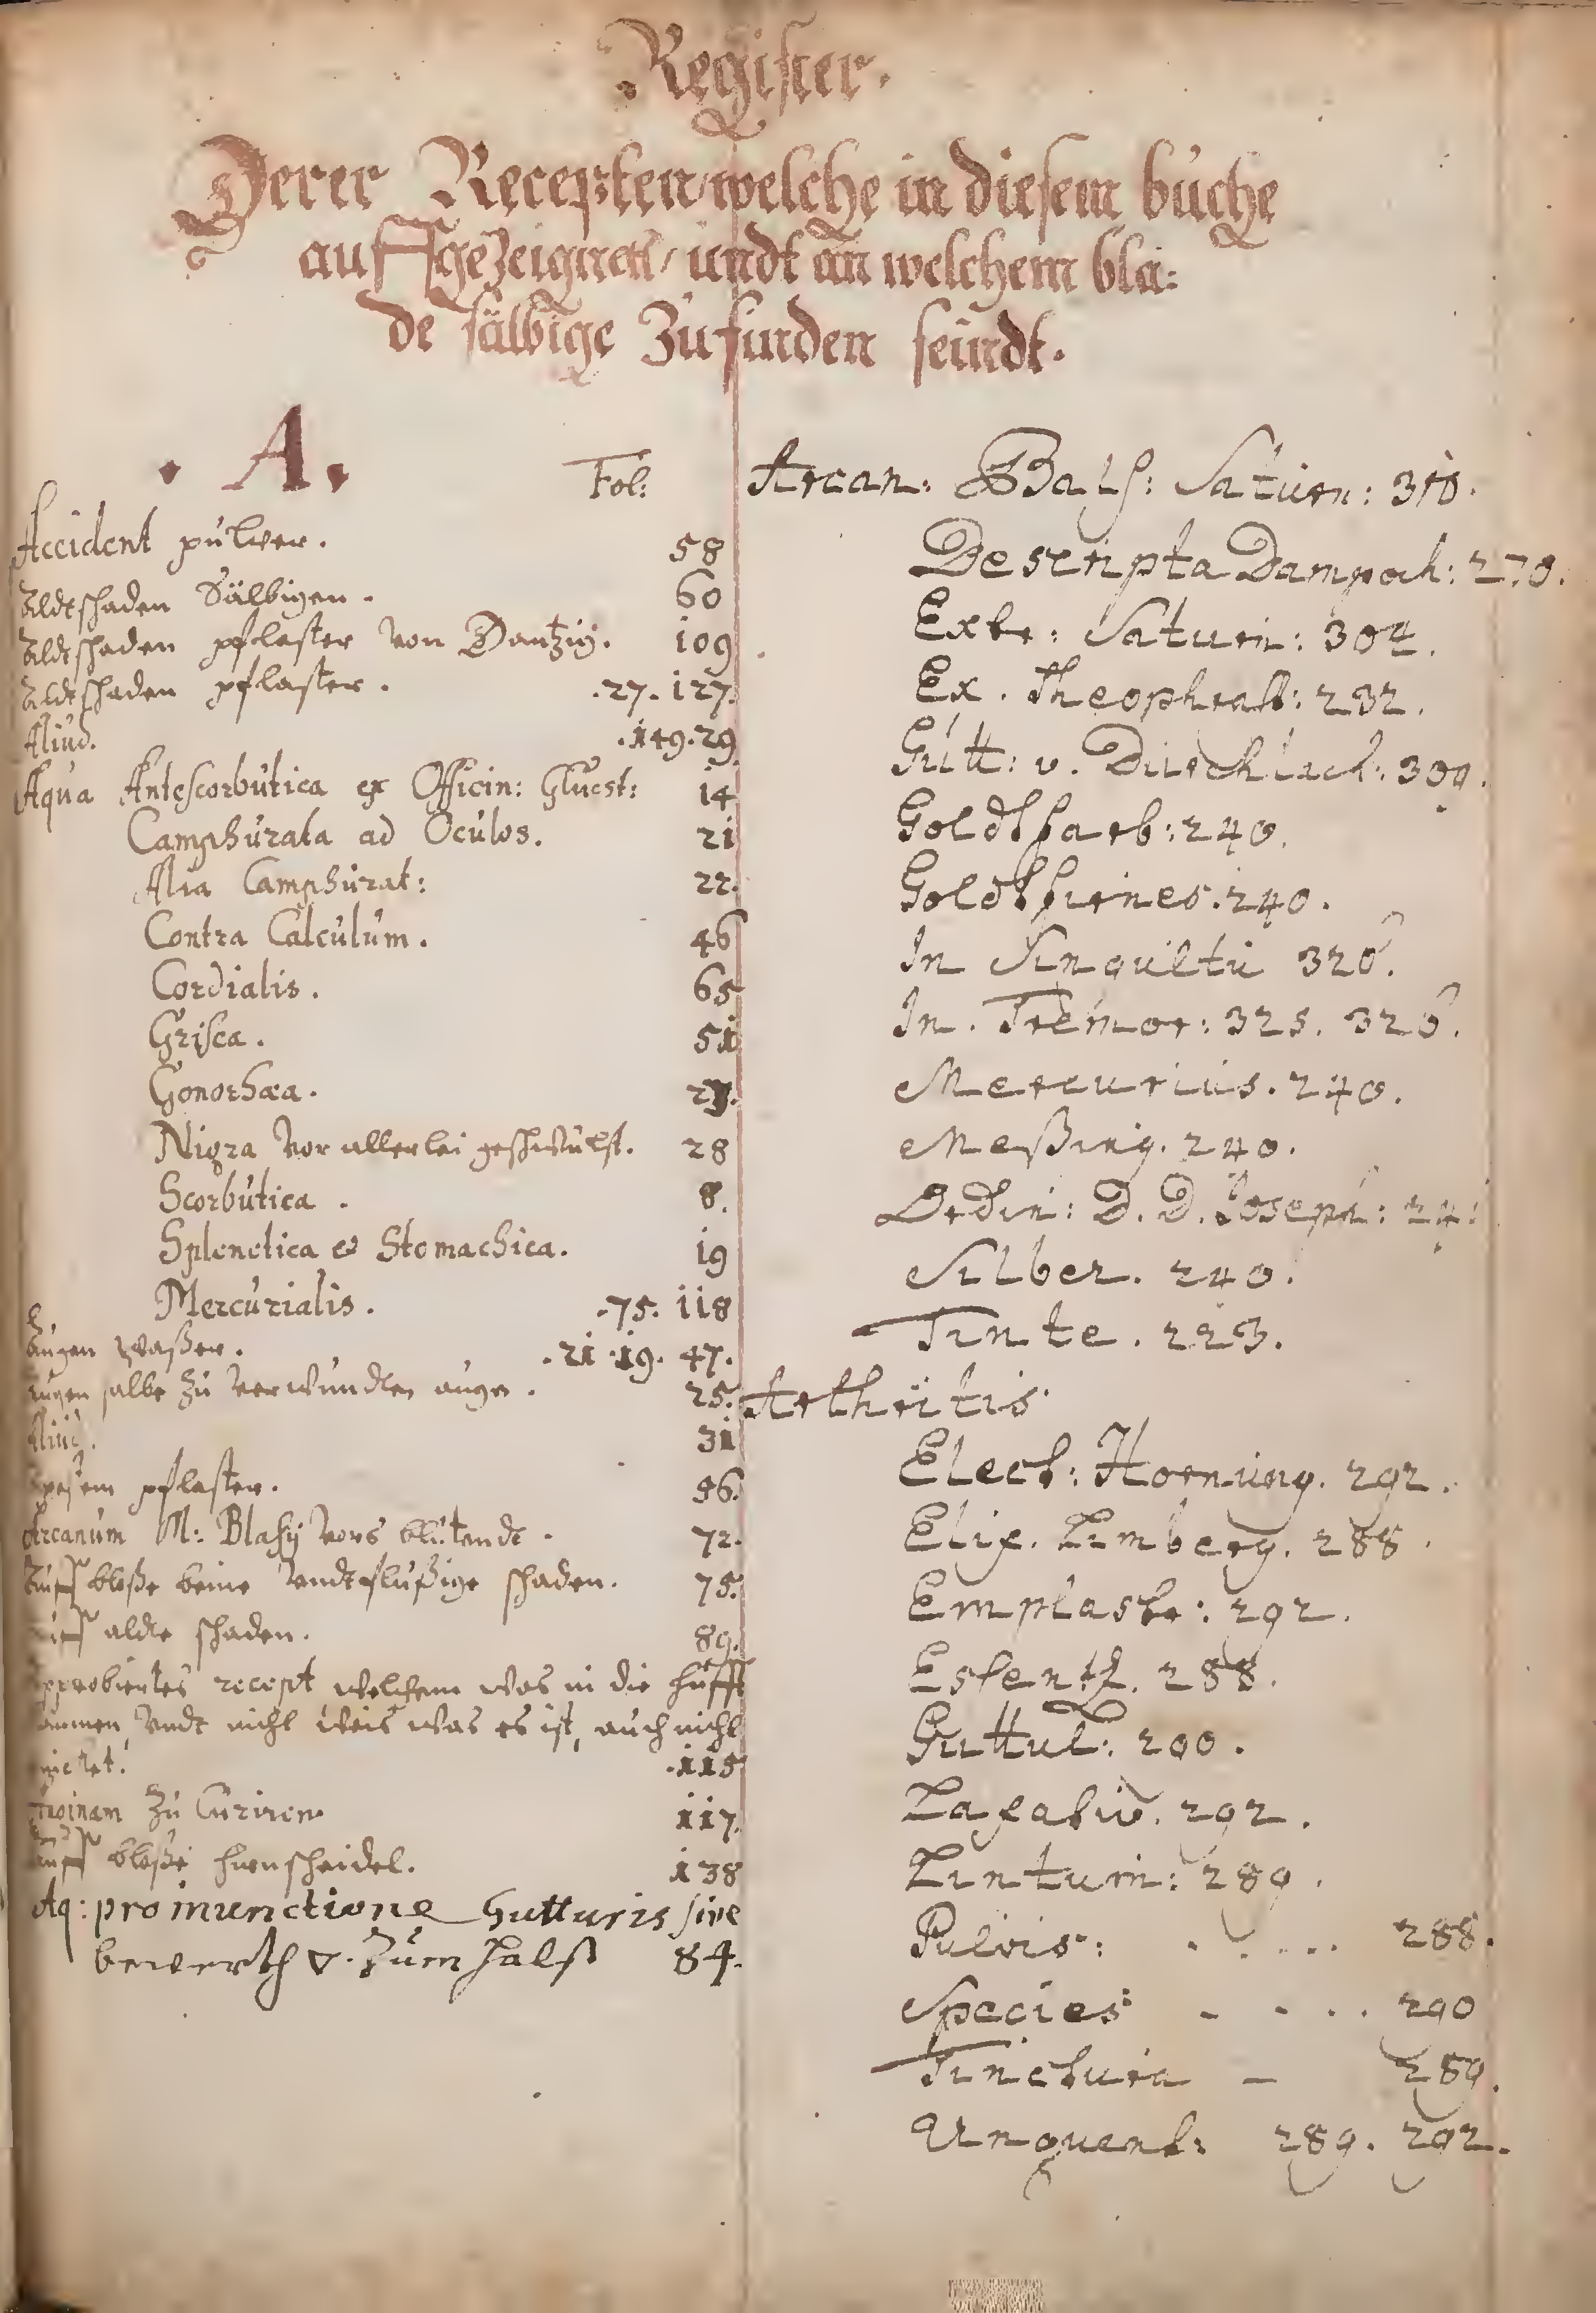 Register.
Derer Recepten/welche in diesem buche
auffgezeignett/ undt an welchem bla:
de sälbige Zufinden seindt.
. A.
Fol:
Accident pulver. 58
Altschaden Sälbigen. 60
Altschaden pflaster von Dantzig. 109
Altschaden pflaster. .27. 127.
Aliud. .149.29
Aqua Antescorbutica ex Officin: 14
Camphurata ad Oculos. 21
Alia Camphurat: 22.
Contra Calculum. 46
Cordialis. 65
Grisea. 51
Gonorhæa.
Nigra vor allerlei geschwulst. 28
Scorbutica. 8.
Splenetica & Stomachica. 19
Mercurialis. .75. 118
Augen waßer. .21.19. 47.
Augen salbe zu verwundten augen. 25.
Aliud. 31
pflaster.
Arcanum M: Blasÿ vors blutende. 72.
Auff bloße beine undt flußige schaden. 75.
Auff aldte schaden. 89.
Approbiertes recept welchem was in die hufft
kommen, undt nicht weis was es ist, auch nicht
.115
zu Curiren 117.
auff bloße 138
Aq: pro munctione Gutturis sive
bewerth ▽. Zum halß 84.
Arcan: Bals: Saturn: 310.
Descripta Dampoch: 270.
Extr: Saturn: 304.
Ex. Theophrast: 232.
Gutt: v. Durchlauch: 309.
Goldtfarb: 240.
Goldtfirnes. 240.
In Singultu 326.
In. Tremor: 325. 326.
Mercurius. 240.
Meßing. 240.
Ordin: D. D. Joseph:
Silber. 240.
Tinte. 223.
Arthritis
Elect: Hornung. 292.
Elix. Limberg. 288.
Emplastr: 292.
Essentz. 288.
Guttul: 290.
Laxativ. 292.
Lintum: 289.
Pulvis: . . . . . 288.
Species - - . . . 290
Tinctura - 289.
Unguent: 289. 292.